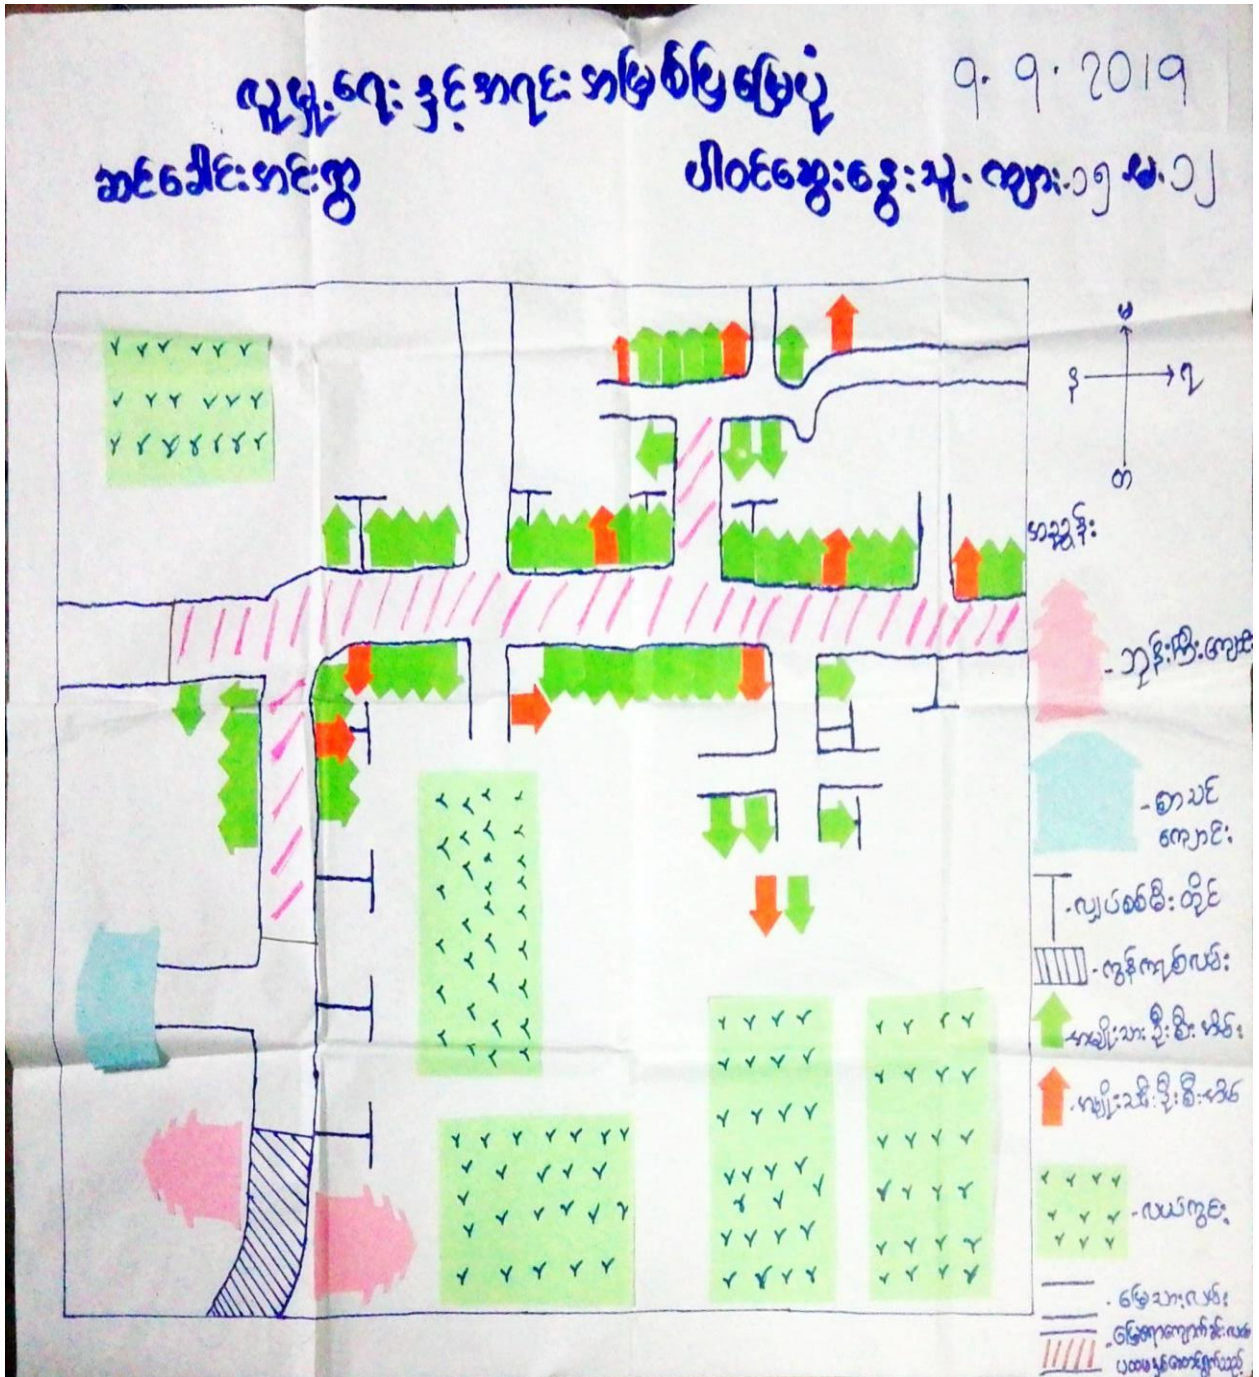 လူမှုရေးနှင့်အရင်းအမြစ်ပြမြေပုံ
9.9.2019
ဆင်ခေါင်းအင်းရွာ
ပါဝင်ဆွေးနွေးသူ - ကျား-၁၅ မ-၁၂
မ
န
ရ
တ
အညွှန်း
- ဘုန်းကြီးကျောင်း
- စာသင်
ကျောင်း
- လျှပ်စစ်မီးတိုင်
- ကွန်ကရစ်လမ်း
- အမျိုးသားဦးစီးအိမ်
- အမျိုးသမီးဦးစီးအိမ်
- လယ်ကွင်း
- မြေသားလမ်း
- မြေရောကျောက်ခင်းလမ်း